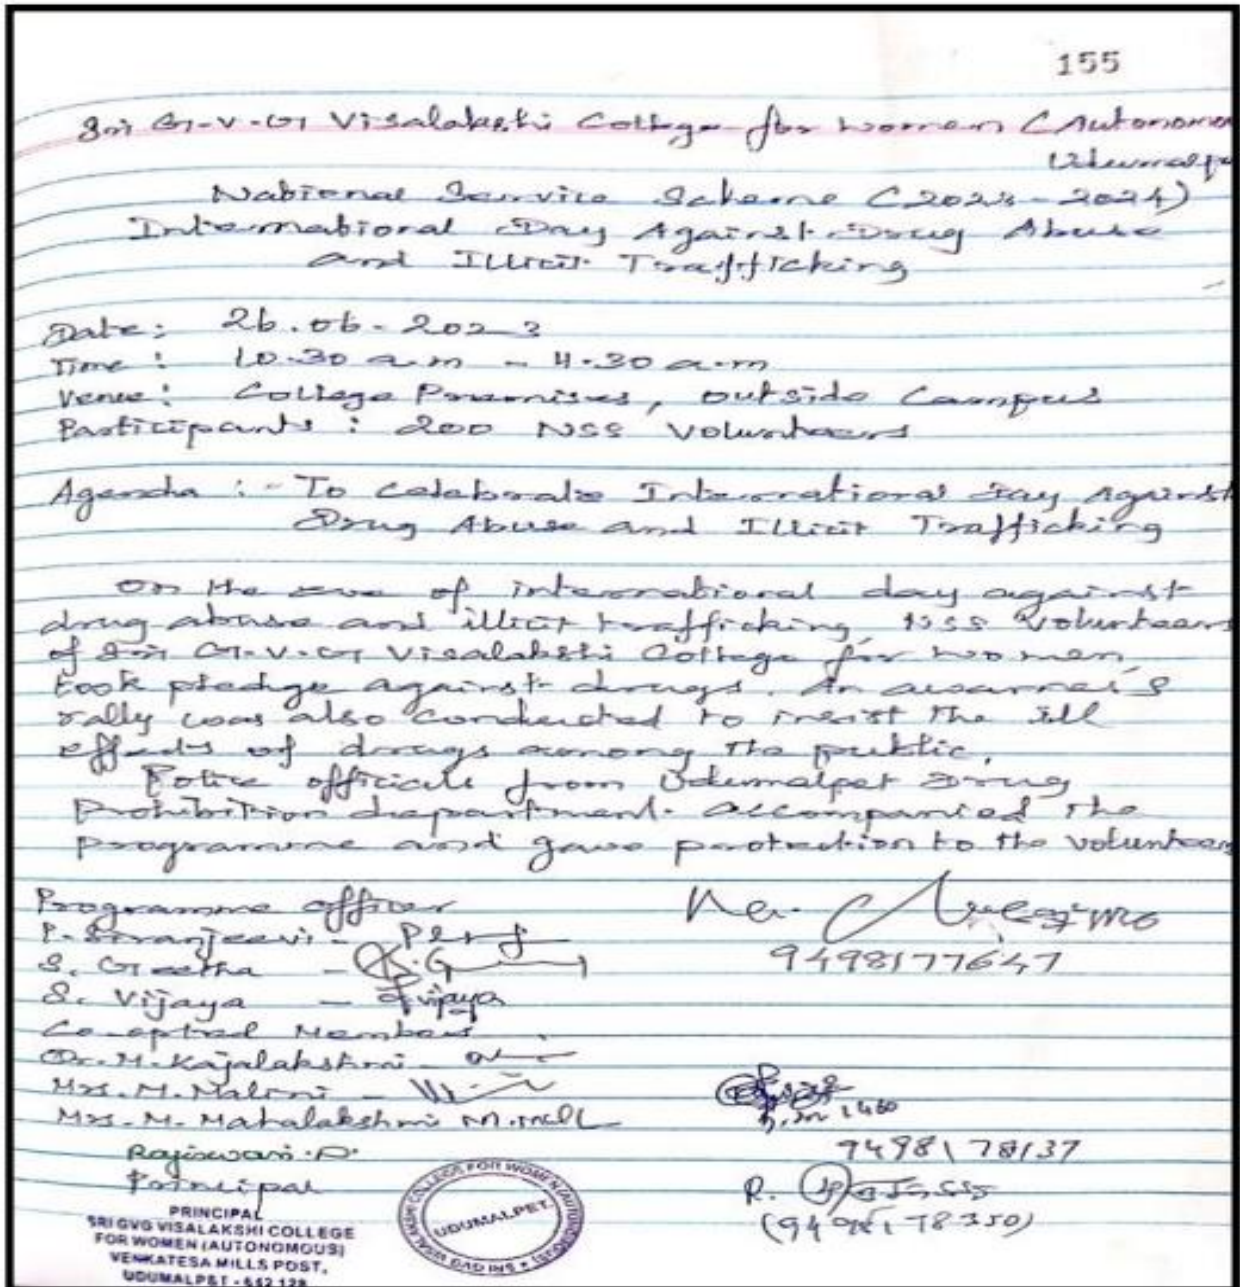 155
Sri G.V.G Visalakshi College for Women (Autonomo
Udumalpe
National Service Scheme (2023-2024)
International Day Against Drug Abuse
and Illicit Trafficking
Date: 26.06.2023
Time: 10.30 a.m - 4.30 a.m
Venue: College Premises, outside Campus
Participants: 200 NSS Volunteers
Agenda :- To celebrate International Day Against
Drug Abuse and Illicit Trafficking
On the eve of international day against
drug abuse and illicit trafficking, NSS Volunteers
of Sri G.V.G Visalakshi College for Women,
took pledge against drugs. An awarness
rally was also conducted to insist the ill
effects of drugs among the public.
Police officials from Udumalpet Drug
Prohibition department accompanied the
programme and gave protection to the volunteers
Programme officer
P. Siranjeevi -
9498177647
S. Geetha - S.G
S. Vijaya - S. Vijaya
Co-opted Members
Dr. M. Kajalakshmi -
Mrs. M. Malini -
Mrs. M. Mahalakshmi M.mall
1460
9498178137
Rajeswari.P.
Principal
R.
PRINCIPAL
SRI GVG VISALAKSHI COLLEGE
FOR WOMEN (AUTONOMOUS)
VENKATESA MILLS POST,
UDUMALPET - 642 128
SRI GVG VISALAKSHI COLLEGE FOR WOMEN (AUTONOMOUS)
UDUMALPET